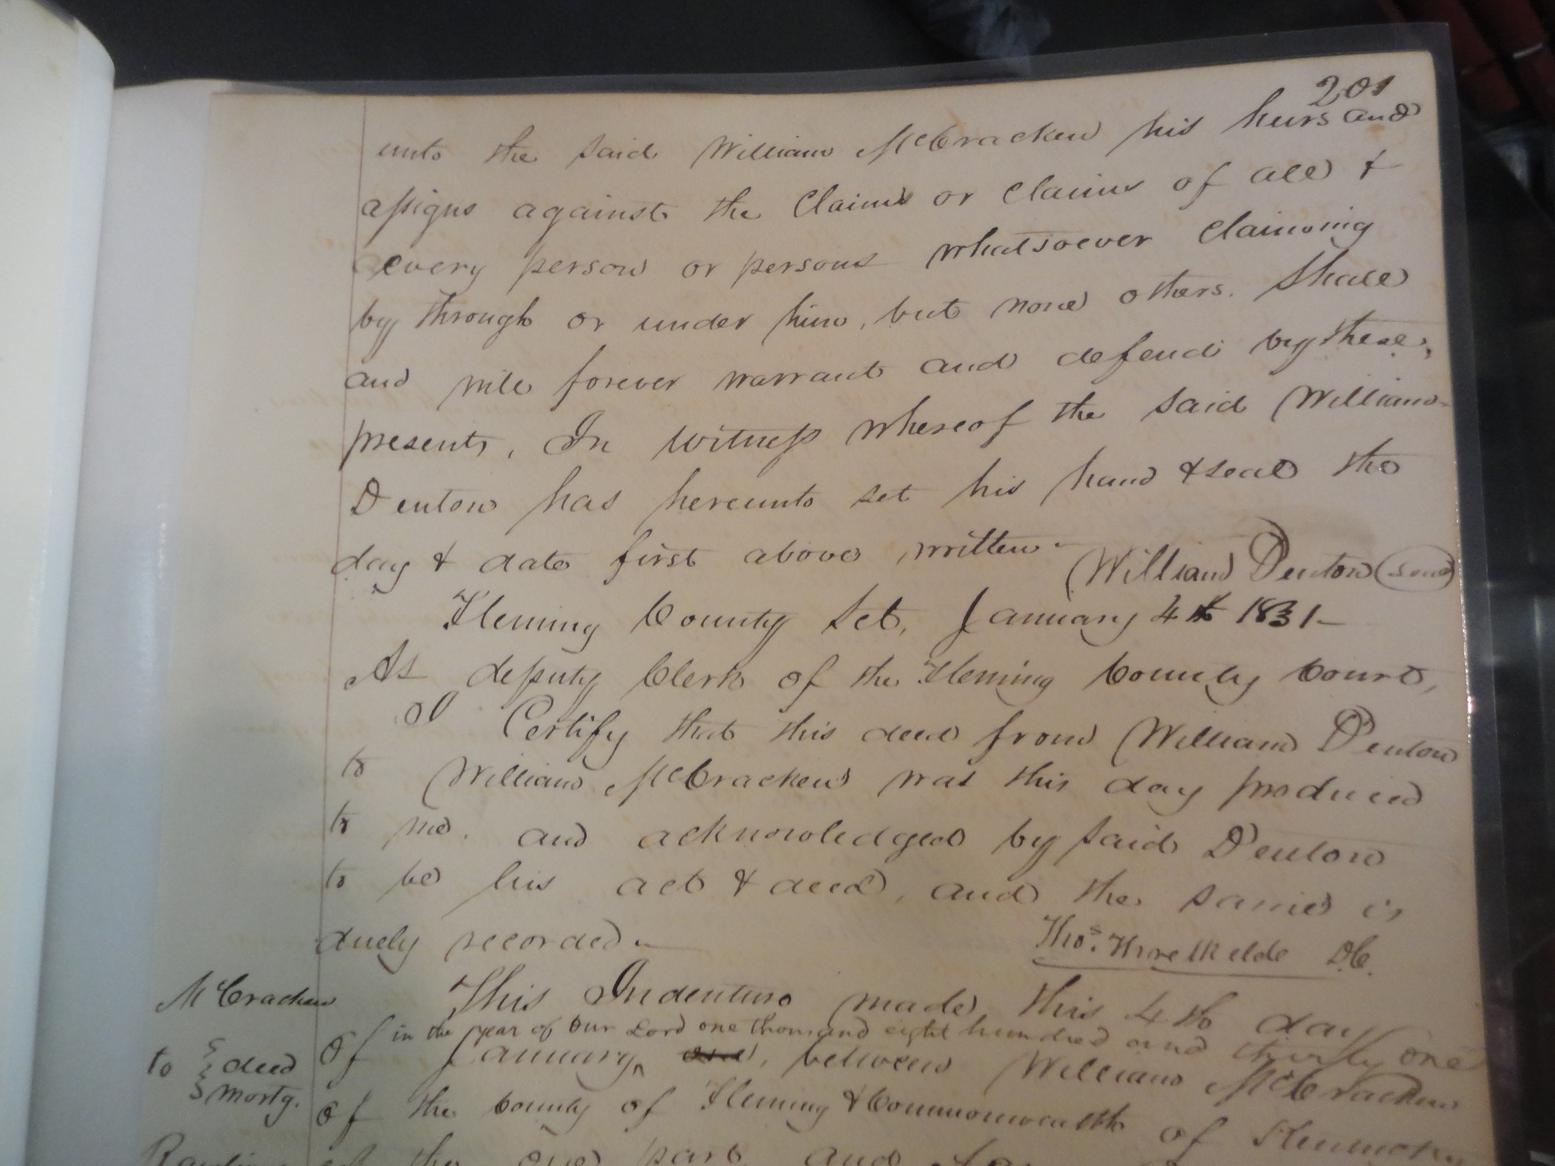 201
unto the said William McCracken his heirs and
assigns against the Claim or claims of all &
every person or persons whatsoever claiming
by through or under him, but none others. Shall
and will forever warrant and defend by these
presents, In Witness whereof the said William
Denton has hereunto set his hand & seal the
day & date first above written-
William Denton (seal)
Fleming County Sct, January 4th 1831-
As deputy Clerk of the Fleming County Court,
I Certify that this deed from William Denton
to William McCracken was this day produced
to me. and acknowledged by said Denton
to be his act & deed, and the same is
duely recorded-
Thos. Threlkelde D.C.
McCracken
to deed
Mortg.
This Indenture made this 4th day
in the year of Our Lord one thousand eight hundred and thirty one
Of January, between William McCracken
of the County of Fleming & Commonwealth of Kentucky
of the one part and